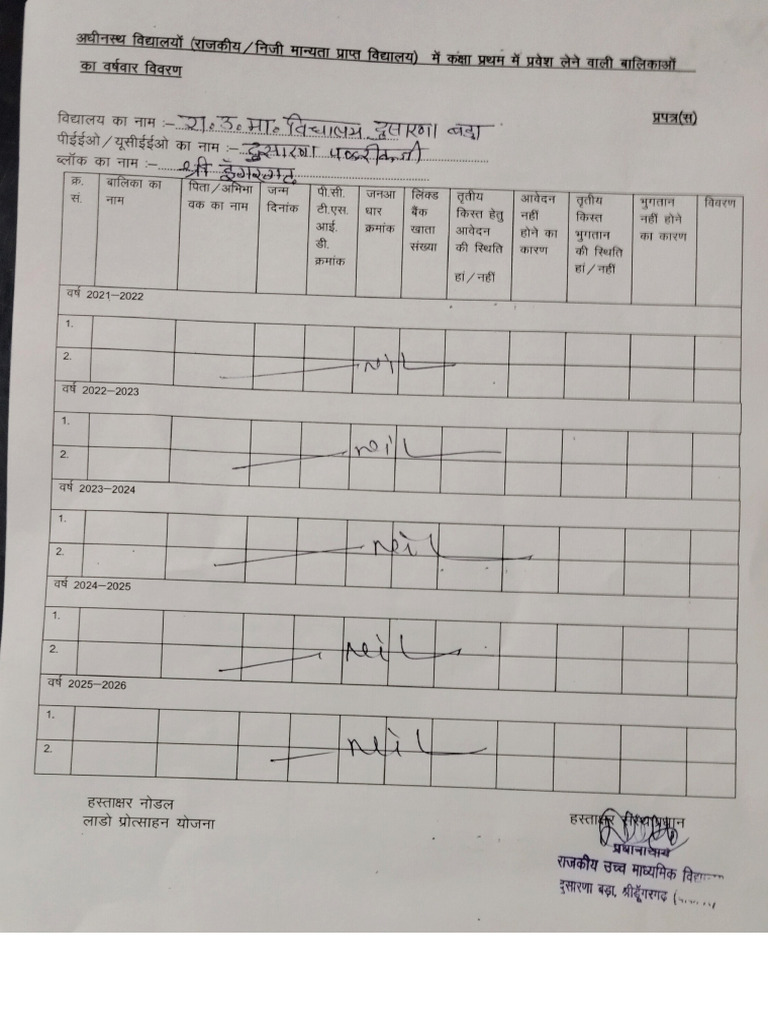 अधीनस्थ विद्यालयों (राजकीय/निजी मान्यता प्राप्त विद्यालय) में कक्षा प्रथम में प्रवेश लेने वाली बालिकाओं
का वर्षवार विवरण
विद्यालय का नाम :- रा.उ.मा. विद्यालय दुसारणा बड़ा प्रपत्र(स)
पीईईओ/यूसीईईओ का नाम :- दुसारणा
ब्लॉक का नाम :- श्री डूंगरगढ़
क्र. सं. बालिका का नाम पिता/अभिभावक का नाम जन्म दिनांक पी.सी.टी.एस. आई.डी. क्रमांक जनआधार क्रमांक लिंक्ड बैंक खाता संख्या तृतीय किस्त हेतु आवेदन की स्थिति हां/नहीं आवेदन नहीं होने का कारण तृतीय किस्त भुगतान की स्थिति हां/नहीं भुगतान नहीं होने का कारण विवरण
वर्ष 2021–2022
1.
2. nil
वर्ष 2022–2023
1.
2. nil
वर्ष 2023–2024
1.
2. nil
वर्ष 2024–2025
1.
2. nil
वर्ष 2025–2026
1.
2. nil
हस्ताक्षर नोडल हस्ताक्षर संस्थाप्रधान
लाडो प्रोत्साहन योजना
प्रधानाचार्य
राजकीय उच्च माध्यमिक
दुसारणा बड़ा, श्रीडूँगरगढ़